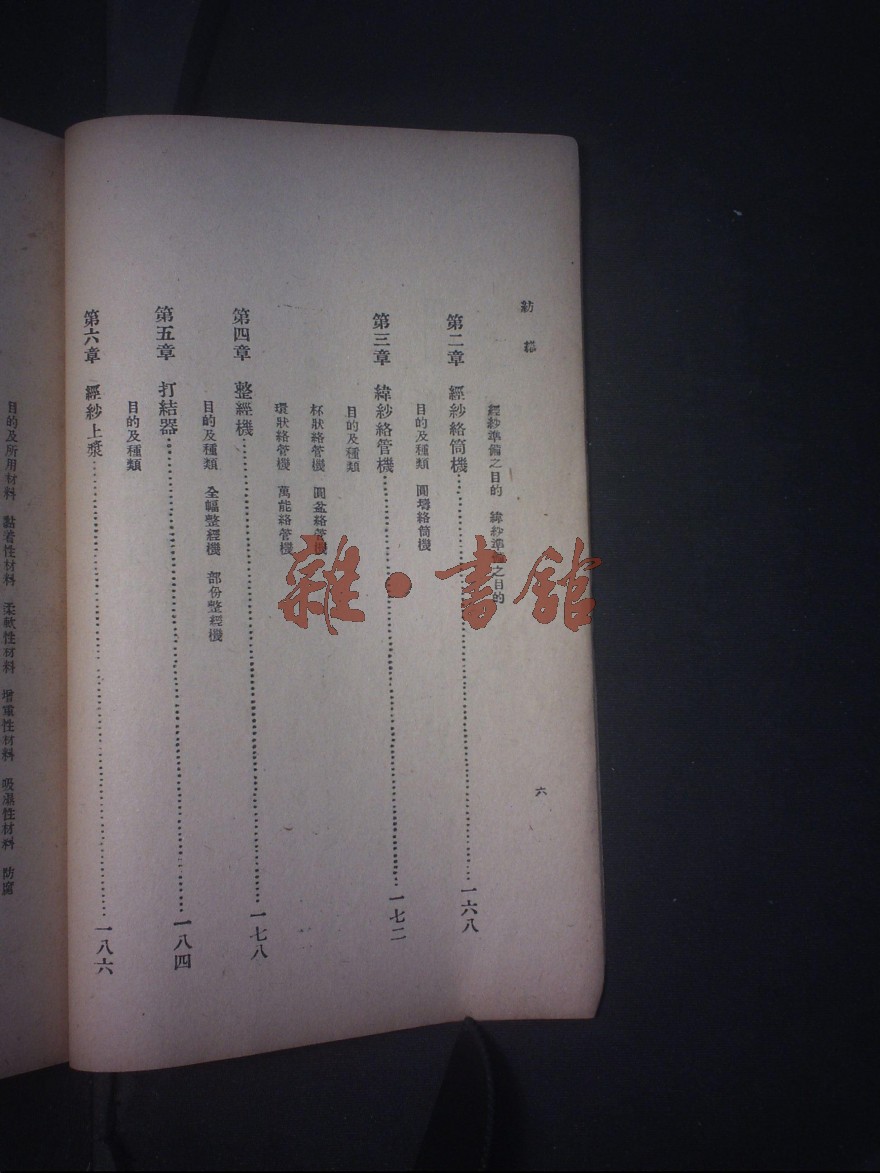 紡織
六
經紗準備之目的 緯紗準備之目的
第二章 經紗絡筒機 一六八
目的及種類 圓壔絡筒機
第三章 緯紗絡管機 一七二
目的及種類
杯狀絡管機 圓盆絡管機
環狀絡管機 萬能絡管機
第四章 整經機 一七八
目的及種類 全幅整經機 部份整經機
第五章 打結器 一八四
目的及種類
第六章 經紗上漿 一八六
目的及所用材料 黏着性材料 柔軟性材料 增重性材料 吸濕性材料 防腐
雜·書館